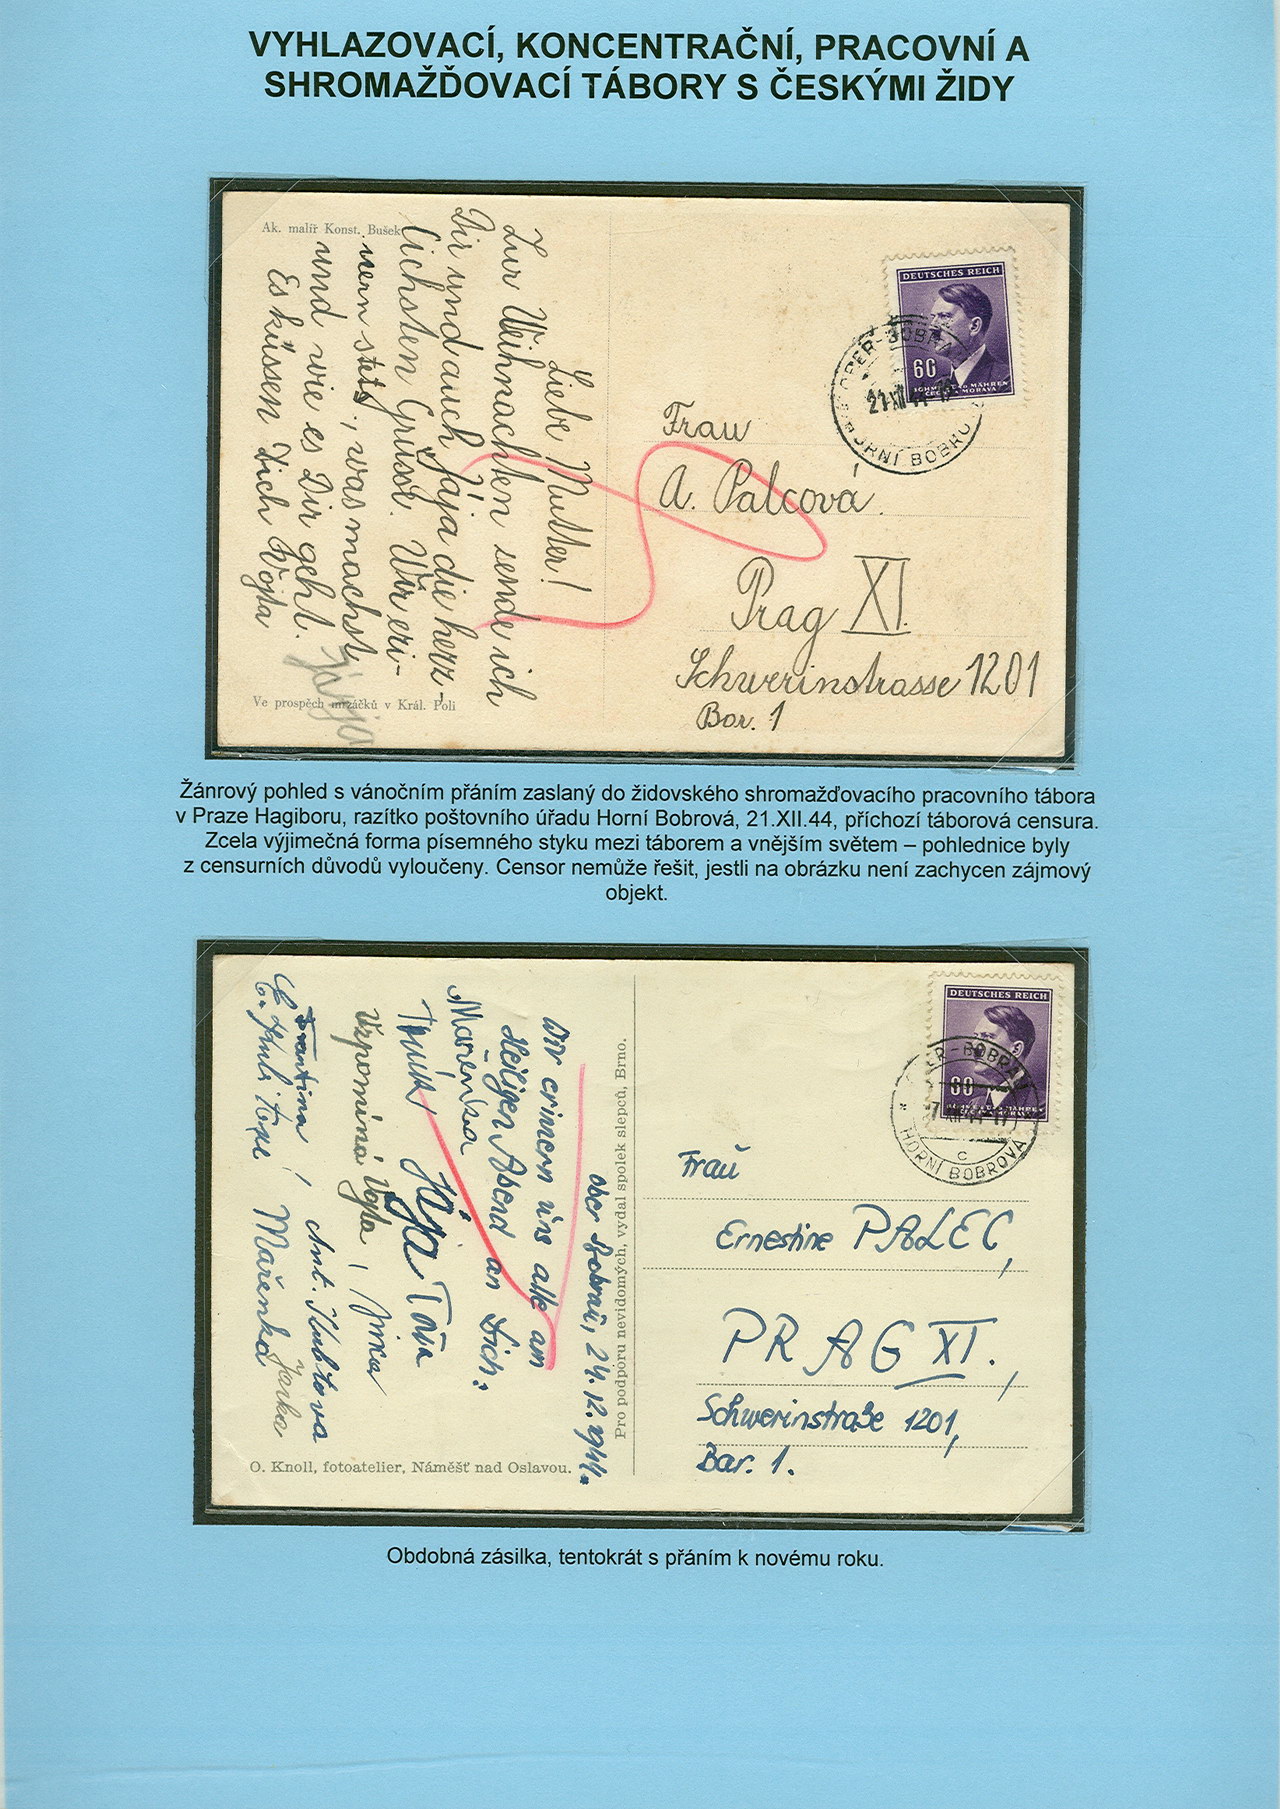 VYHLAZOVACÍ, KONCENTRAČNÍ, PRACOVNÍ A
SHROMAŽĎOVACÍ TÁBORY S ČESKÝMI ŽIDY
Ak. malíř Konst. Bušek
Liebe Mutter!
Zur Weihnachten sende ich
Dir und auch Jája die herz-
lichsten Grüsse. Wir eri-
nern stets, was machst
und wie es Dir geht.
Es küssen Dich Vojta
Jarja
Ve prospěch mrzáčků v Král. Poli
DEUTSCHES REICH
60
BÖHMEN UND MÄHREN
ČECHY A MORAVA
OBER-BOBRAU
21.XII.44
HORNÍ BOBROVÁ
Frau
A. Palcová.
Prag XI.
Schwerinstrasse 1201
Bar. 1
Žánrový pohled s vánočním přáním zaslaný do židovského shromažďovacího pracovního tábora
v Praze Hagiboru, razítko poštovního úřadu Horní Bobrová, 21.XII.44, příchozí táborová censura.
Zcela výjimečná forma písemného styku mezi táborem a vnějším světem – pohlednice byly
z censurních důvodů vyloučeny. Censor nemůže řešit, jestli na obrázku není zachycen zájmový
objekt.
Ober Bobrau, 24.12.1944.
Wir erinnern uns alle am
Heiligen Abend an Dich.
Mařenka
Jája Toňa
Vzpomíná Vojta
Frantina
Ant. Kubtova
Mařenka Jarka
O. Knoll, fotoatelier, Náměšť nad Oslavou.
Pro podporu nevidomých, vydal spolek slepců, Brno.
DEUTSCHES REICH
60
BÖHMEN UND MÄHREN
ČECHY A MORAVA
OBER-BOBRAU
HORNÍ BOBROVÁ
c
Frau
Ernestine PALEC,
PRAG XI.,
Schwerinstraße 1201,
Bar. 1.
Obdobná zásilka, tentokrát s přáním k novému roku.